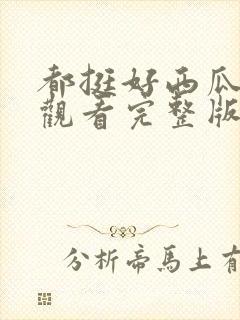 都挺好西瓜
觀看完整版
分析帝馬上有